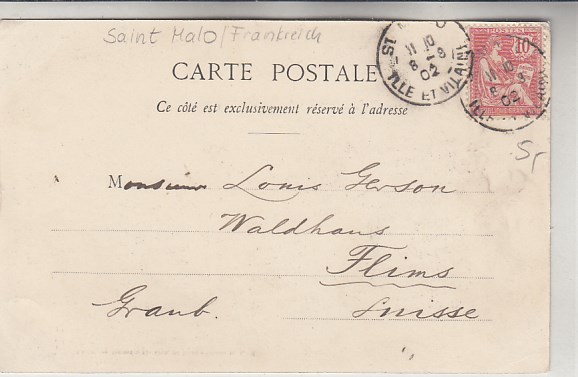 Saint Malo/Frankreich
CARTE POSTALE
Ce côté est exclusivement réservé à l'adresse
POSTES
10
ST MALO
11 10
8 - 8
02
ILLE ET VILAINE
11 10
8 8
02
5,-
Monsieur Louis Gerson
Waldhaus
Flims
Graub. Suisse